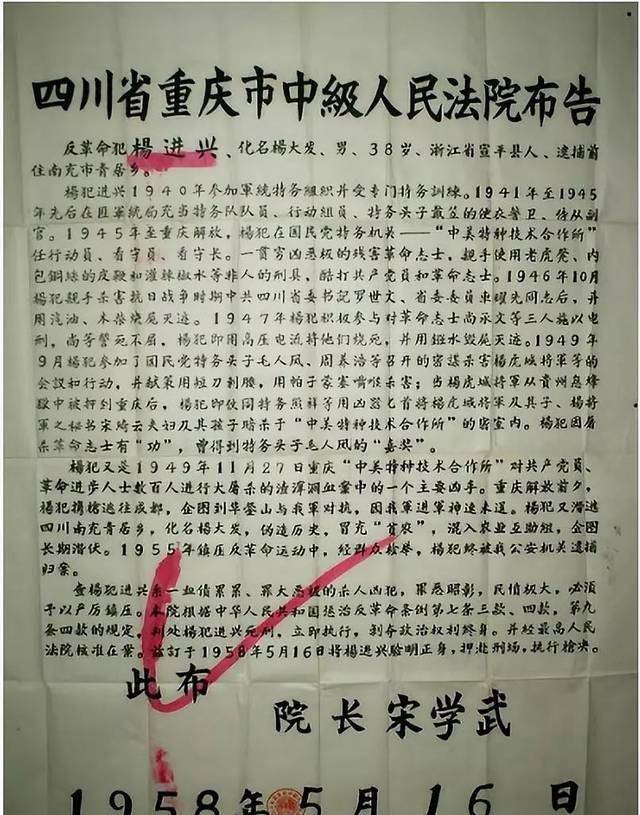 四川省重庆市中級人民法院布告
反革命犯楊进兴、化名楊大发、男、38岁、浙江省宣平县人、逮捕前
住南充市青居乡。
楊犯进兴1940年参加軍統特务組织并受专门特务訓練。1941年至1945
年先后在匪軍統局充当特务队队員、行动組員、特务头子戴笠的便衣警卫、侍从副
官。1945年至重庆解放，楊犯在国民党特务机关——“中美特种技术合作所”
任行动員、看守員、看守长。一貫穷凶恶极的残害革命志士，亲手使用老虎凳、内
包銅絲的皮鞭和灌辣椒水等非人的刑具，酷打共产党員和革命志士。1946年10月
楊犯親手杀害抗日战争时期中共四川省委书記罗世文、省委委員車耀先同志后，并
用汽油、木柴焚屍灭迹。1947年楊犯积极参与对革命志士尚承文等三人施以电
刑，尚等誓死不屈，楊犯即用高压电流将他們烧死，并用鏹水毀屍灭迹。1949年
9月楊犯参加了国民党特务头子毛人凤、周养浩等召开的密謀杀害楊虎城将軍等的
会议和行动，并献策用短刀刺腰，用帕子蒙塞嘴喉杀害；当楊虎城将軍从貴州息烽
獄中被押到重庆后，楊犯即伙同特务熊祥等用凶器匕首将楊虎城将軍及其子、楊将
軍之秘书宋綺云夫妇及其孩子暗杀于“中美特种技术合作所”的密室内。楊犯因屠
杀革命志士有“功”，曾得到特务头子毛人凤的“嘉奖”。
楊犯又是1949年11月27日重庆“中美特种技术合作所”对共产党員、
革命进步人士数百人进行大屠杀的渣滓洞血案中的一个主要凶手。重庆解放前夕，
楊犯携槍逃往成都，企图到华蓥山与我軍对抗，因我軍进軍神速未遂。楊犯又潜逃
四川南充青居乡，化名楊大发，伪造历史，冒充“首农”，混入农业互助組，企图
长期潜伏。1955年镇压反革命运动中，經群众檢举，楊犯終被我公安机关逮捕
归案。
查楊犯进兴系一血债累累、罪大恶极的杀人凶犯，罪恶昭彰，民憤极大，必須
予以严厉镇压。本院根据中华人民共和国惩治反革命条例第七条三款、四款，第九
条四款的規定，判处楊犯进兴死刑，立即执行，剥夺政治权利終身。并經最高人民
法院核准在案。兹訂于1958年5月16日将楊进兴驗明正身，押赴刑场，执行槍决。
此布
院长宋学武
1958年5月16日